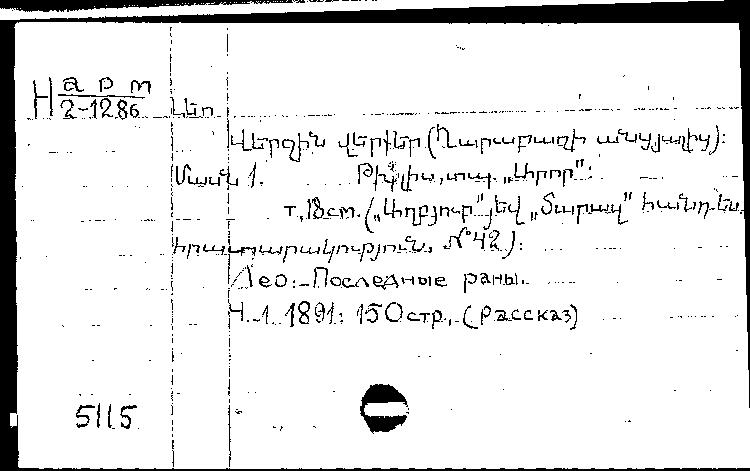 Н арт
2-1286 Լեո
Վերջին վերքեր (Ղարաբաղի անցյալից):
Մասն 1. Թիֆլիս, տպ. „Արոր":
т, 18 cm. („Աղբյուր" եվ „Տարազ" հանդես.
հրատարակություն. №42):
Лео:-Последные раны.
Ч.-1. 1891: 150стр,-(рассказ)
5115